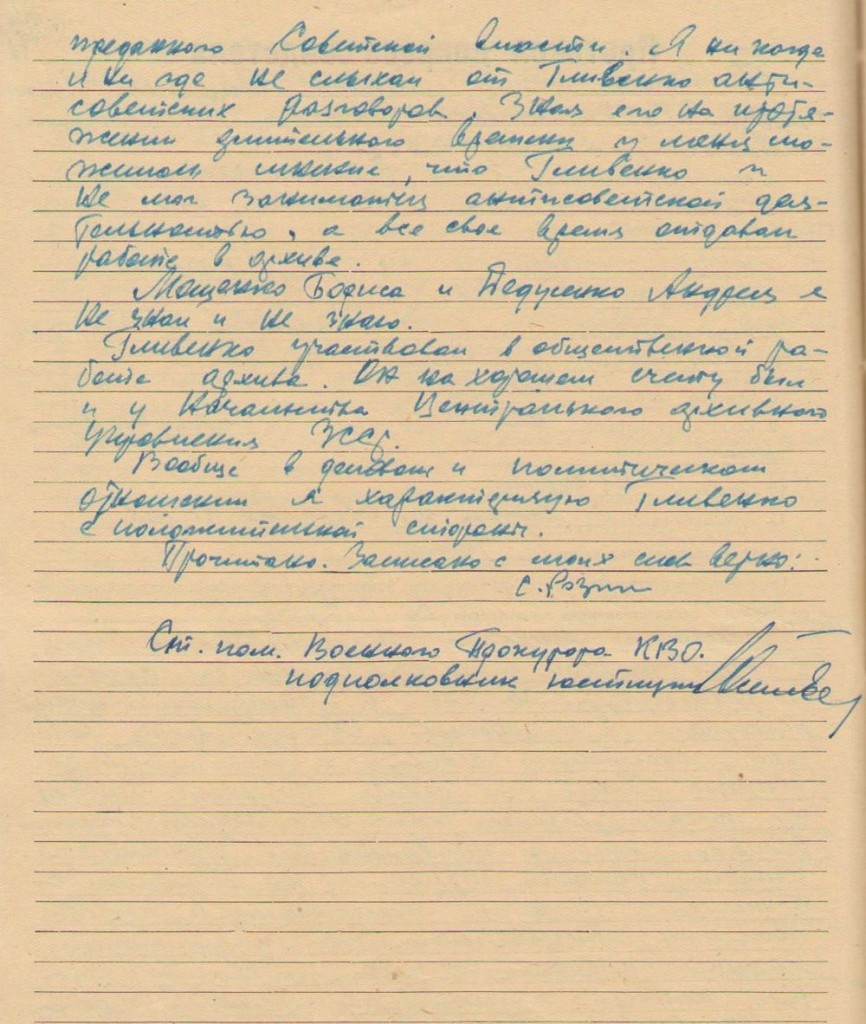 преданного Советской власти. Я ни когда
и ни где не слыхал от Гливенко анти-
советских разговоров. Зная его на протя-
жении длительного времени у меня сло-
жилось мнение, что Гливенко и
не мог заниматься антисоветской дея-
тельностью, а все свое время отдавал
работе в архиве.
Мащенко Бориса и Педученко Андрея я
не знал и не знаю.
Гливенко участвовал в общественной ра-
боте архива. Он на хорошем счету был
и у начальства Центрального архивного
управления
Вообще в деловом и политическом
отношении я характеризую Гливенко
с положительной стороны.
Прочитано. Записано с моих слов верно:
С. Розин
Ст. пом. Военного Прокурора КВО.
подполковник юстиции